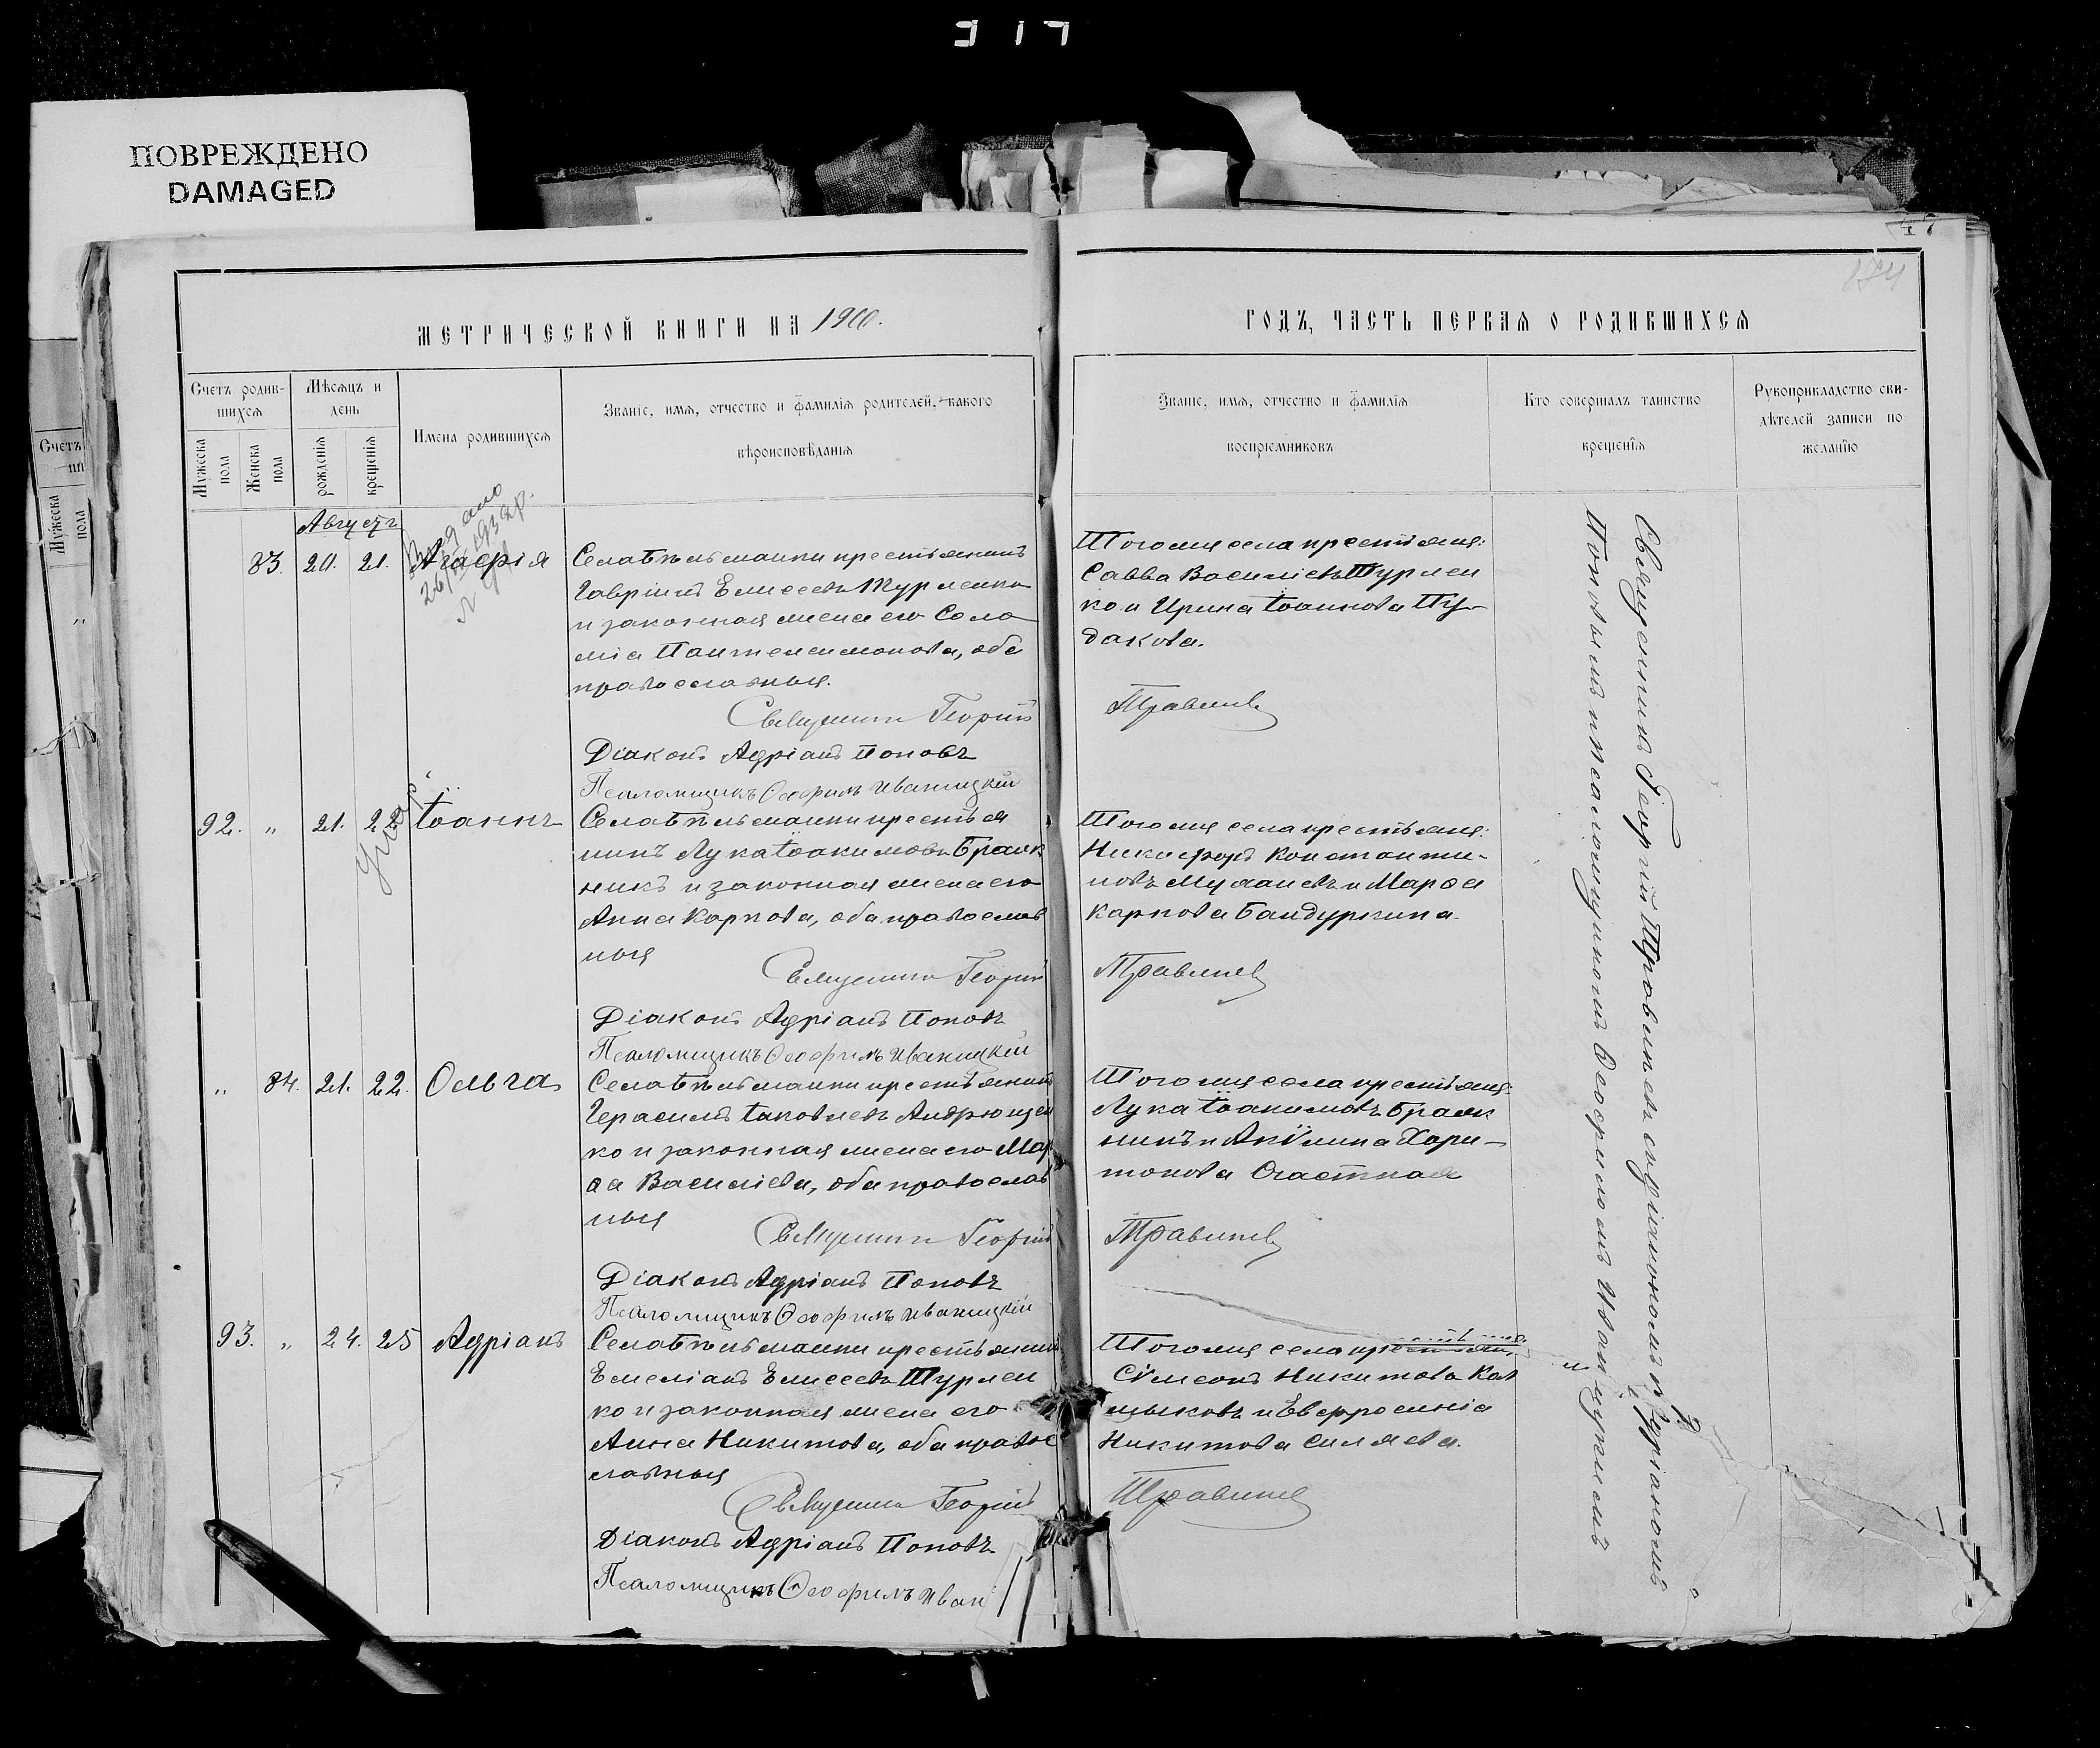 317
ПОВРЕЖДЕНО
DAMAGED
174
МЕТРИЧЕСКОЙ КНИГИ НА 1900.
ГОДЪ, ЧАСТЬ ПЕРВАЯ О РОДИВШИХСЯ
Счетъ родив-
шихся
Мужеска пола
Женска пола
Мѣсяцъ и
день
рожденія
крещенія
Имена родившихся
Званіе, имя, отчество и фамилія родителей, какого
вѣроисповѣданія
Званіе, имя, отчество и фамилія
воспріемниковъ
Кто совершалъ таинство
крещенія
Рукоприкладство сви-
дѣтелей записи по
желанію
Августъ
83. 20. 21. Агаѳрія
Села Бѣльманки крестьянинъ
Гавріилъ Елисеевъ Турленко
и законная жена его Соло
мія Пантелеимонова, оба
православныя.
Священникъ Георгій
Діаконъ Адріанъ Поповъ
Псаломщикъ Ѳеофилъ Иваницкій
Тогоже села крестьяне:
Савва Василіевъ Турлен
ко и Ирина Іоаннова Пу-
дакова.
Травлевъ
92. " 21. 22. Іоаннъ
Села Бѣльманки крестья
нинъ Лука Іоакимовъ Браж
никъ и законная жена его
Анна Карпова, оба православ
ныя
Священникъ Георгій
Діаконъ Адріанъ Поповъ
Псаломщикъ Ѳеофилъ Иваницкій
Тогоже села крестьяне:
Никифоръ Константи-
новъ и Марѳа
Карпова Бандуркина.
" 84. 21. 22. Ольга
Села Бѣльманки крестьянинъ
Герасимъ Іаковлевъ Андрющен
ко и законная жена его Мар
ѳа Василіева, оба православ
ныя
Священникъ Георгій
Діаконъ Адріанъ Поповъ
Псаломщикъ Ѳеофилъ Иваницкій
Тогоже села крестьяне:
Лука Іоакимовъ Браж
никъ и Акѵлина Хари-
тонова Счастная
93. " 24. 25 Адріанъ
Села Бѣльманки крестьянинъ
Емеліанъ Елисеевъ Турлен
ко и законная жена его
Анна Никитова, оба правос
лавныя
Священникъ Георгій
Діаконъ Адріанъ Поповъ
Псаломщикъ Ѳеофилъ Иван
Тогоже села крестьяне:
Сѵмеонъ Никитовъ Кол
и Евфросинія
Никитова Силяева.
Священникъ Георгій съ діакономъ Адріаномъ
Поповымъ и псаломщикомъ Ѳеофиломъ Иваницкимъ